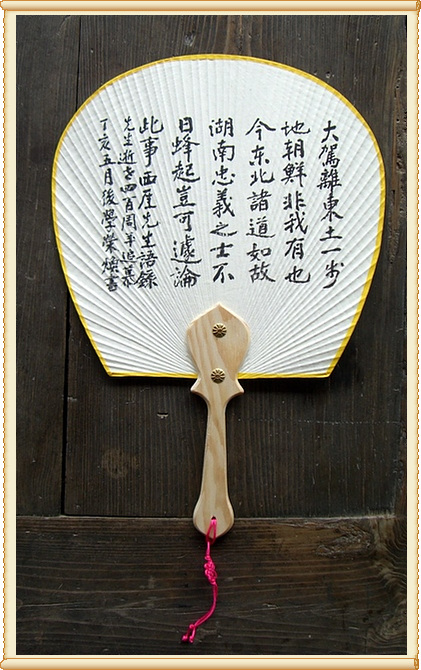 大駕離東土一步
地朝鮮非我有也
今东北諸道如故
湖南忠義之士不
日蜂起豈可遽論
此事西厓先生語錄
先生逝去四百周年追慕
丁亥五月後學榮煥書